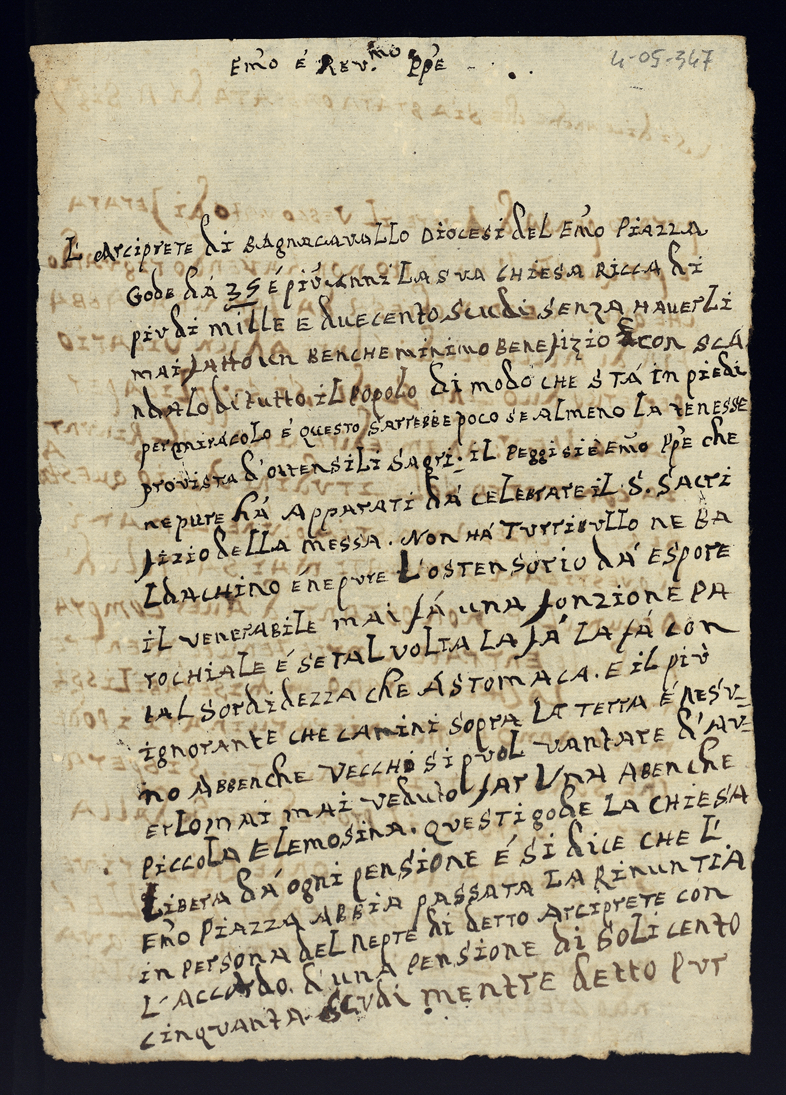 Emo é Rev.mo Ppe
4-05-347
L'Arciprete di Bagnacavallo Diocesi del Emo Piazza
Gode da 35 é più anni La sua chiesa Ricca di
più di mille e duecento scudi senza haverli
mai fatto un benche minimo benefizio é con sca
ndalo di tutto il popolo di modo che stá in piedi
per miracolo é questo sarrebbe poco se almeno la tenesse
provista d'ottensili sagri; il peggi si é Emo Ppe che
ne pure há Apparati dá celebrare il S. Sacri
fizio della messa. Non há Turribullo ne Ba
ldachino é ne pure L'ostensorio dá espore
il venerabile mai fá una fonzione pa
rochiale é se tal volta la fá la fá con
tal sordidezza che Astomaca. E il più
ignorante che camini sopra la terra é nesu=
no Abbenche vecchi si puol vantare d'Av=
erlo mai mai veduto far una Abenche
piccola elemosina. Questi gode la chiesa
Libera dá ogni pensione é si dice che L'
Emo Piazza abbia passata la Rinuntia
in persona del nepte di detto Arciprete con
L'Accordo d'una pensione di soli cento
cinquanta scudi mentre detto pur